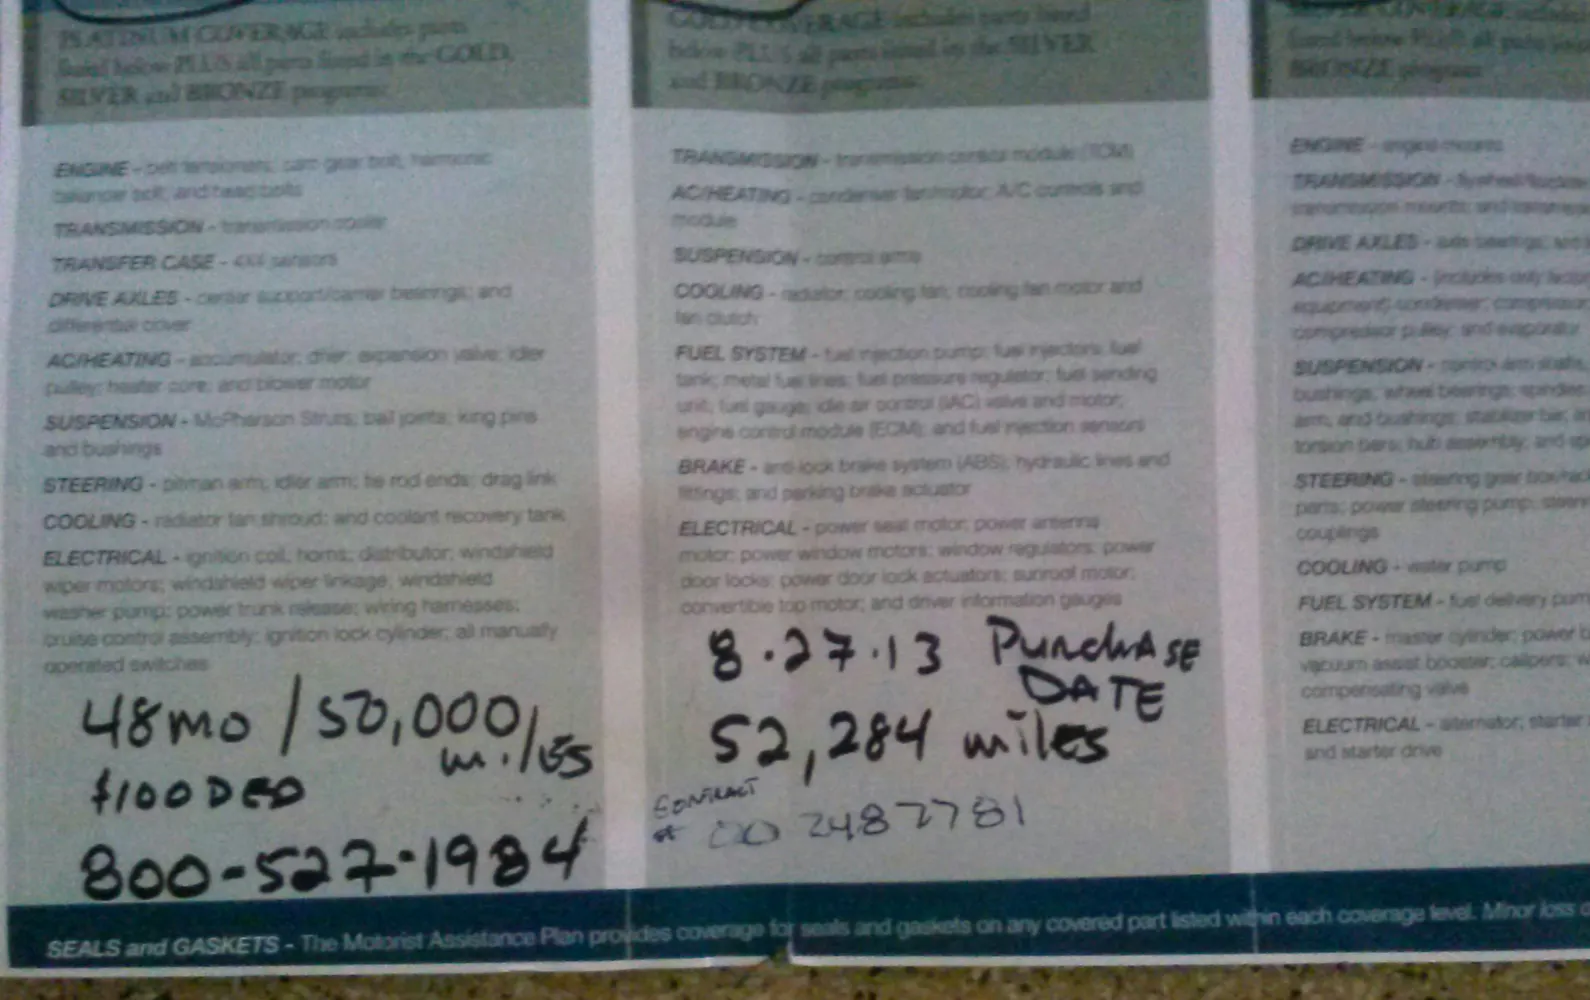 PLATINUM COVERAGE includes parts
listed below PLUS all parts listed in the GOLD,
SILVER and BRONZE programs:
ENGINE - belt tensioners; cam gear bolt; harmonic
balancer bolt; and head bolts
TRANSMISSION - transmission cooler
TRANSFER CASE - 4X4 sensors
DRIVE AXLES - center support/carrier bearings; and
differential cover
AC/HEATING - accumulator; drier; expansion valve; idler
pulley; heater core; and blower motor
SUSPENSION - McPherson Struts; ball joints; king pins
and bushings
STEERING - pitman arm; idler arm; tie rod ends; drag link
COOLING - radiator fan shroud; and coolant recovery tank
ELECTRICAL - ignition coil; horns; distributor; windshield
wiper motors; windshield wiper linkage; windshield
washer pump; power trunk release; wiring harnesses;
cruise control assembly; ignition lock cylinder; all manually
operated switches
48mo / 50,000/
miles
$100 DED
800-527-1984
GOLD COVERAGE includes parts listed
below PLUS all parts listed in the SILVER
and BRONZE programs:
TRANSMISSION - transmission control module (TCM)
AC/HEATING - condenser fan/motor; A/C controls and
module
SUSPENSION - control arms
COOLING - radiator; cooling fan; cooling fan motor and
fan clutch
FUEL SYSTEM - fuel injection pump; fuel injectors; fuel
tank; metal fuel lines; fuel pressure regulator; fuel sending
unit; fuel gauge; idle air control (IAC) valve and motor;
engine control module (ECM); and fuel injection sensors
BRAKE - anti-lock brake system (ABS); hydraulic lines and
fittings; and parking brake actuator
ELECTRICAL - power seat motor; power antenna
motor; power window motors; window regulators; power
door locks; power door lock actuators; sunroof motor;
convertible top motor; and driver information gauges
8·27·13 PURCHASE
DATE
52,284 miles
CONTRACT
# 00 2487781
SILVER COVERAGE includes
listed below PLUS all parts
BRONZE program:
ENGINE - engine mounts
TRANSMISSION -
transmission mounts; and
DRIVE AXLES - axle bearings; and
AC/HEATING - (includes only
equipment) condenser; compressor
compressor pulley; and evaporator
SUSPENSION - control arm
bushings; wheel bearings; spindles
arm; and bushings; stabilizer bar;
torsion bars; hub assembly; and
STEERING - steering gear
parts; power steering pump;
couplings
COOLING - water pump
FUEL SYSTEM - fuel delivery
BRAKE - master cylinder; power
vacuum assist booster; calipers;
compensating valve
ELECTRICAL - alternator; starter
and starter drive
SEALS and GASKETS - The Motorist Assistance Plan provides coverage for seals and gaskets on any covered part listed within each coverage level. Minor loss